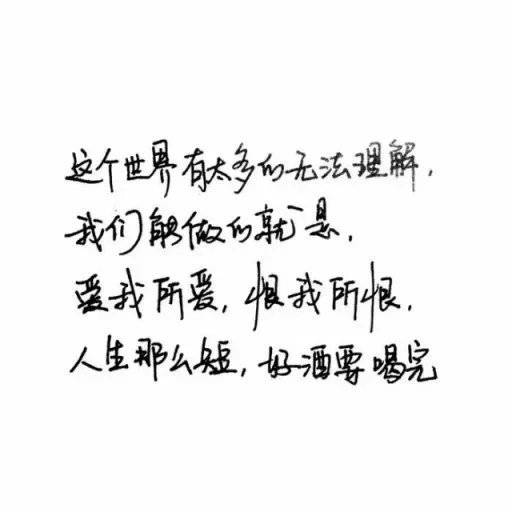 这个世界有太多的无法理解，
我们能做的就是，
爱我所爱，恨我所恨，
人生那么短，好酒要喝完